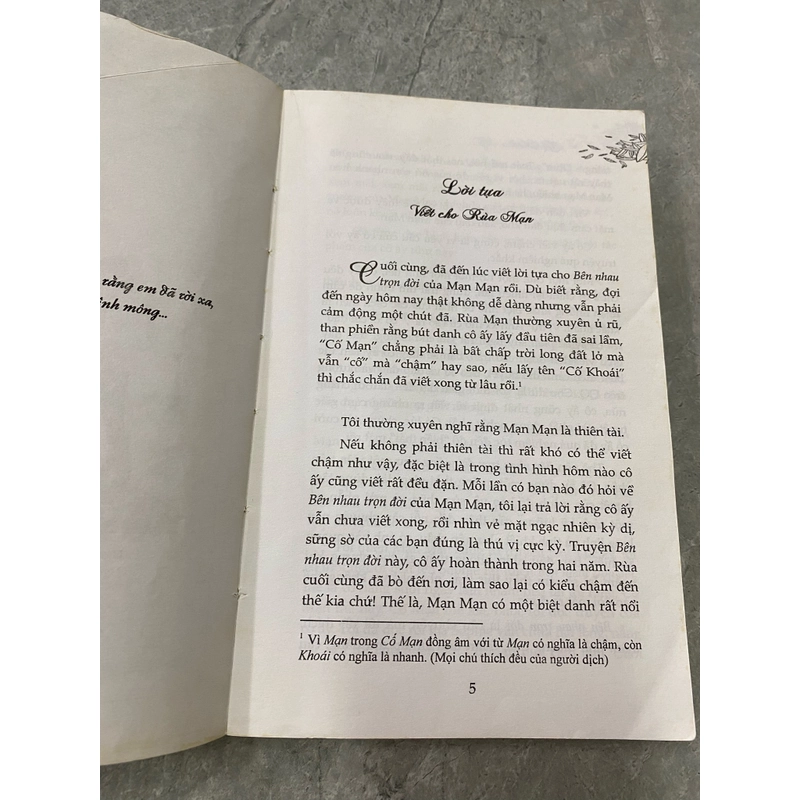 rằng em đã rời xa,
mênh mông...
Lời tựa
Viết cho Rùa Mạn
Cuối cùng, đã đến lúc viết lời tựa cho Bên nhau
trọn đời của Mạn Mạn rồi. Dù biết rằng, đợi
đến ngày hôm nay thật không dễ dàng nhưng vẫn phải
cảm động một chút đã. Rùa Mạn thường xuyên ủ rũ,
than phiền rằng bút danh cô ấy lấy đầu tiên đã sai lầm,
“Cố Mạn” chẳng phải là bất chấp trời long đất lở mà
vẫn “cố” mà “chậm” hay sao, nếu lấy tên “Cố Khoái”
thì chắc chắn đã viết xong từ lâu rồi.¹
Tôi thường xuyên nghĩ rằng Mạn Mạn là thiên tài.
Nếu không phải thiên tài thì rất khó có thể viết
chậm như vậy, đặc biệt là trong tình hình hôm nào cô
ấy cũng viết rất đều đặn. Mỗi lần có bạn nào đó hỏi về
Bên nhau trọn đời của Mạn Mạn, tôi lại trả lời rằng cô ấy
vẫn chưa viết xong, rồi nhìn vẻ mặt ngạc nhiên kỳ dị,
sững sờ của các bạn đúng là thú vị cực kỳ. Truyện Bên
nhau trọn đời này, cô ấy hoàn thành trong hai năm. Rùa
cuối cùng đã bò đến nơi, làm sao lại có kiểu chậm đến
thế kia chứ! Thế là, Mạn Mạn có một biệt danh rất nổi
¹ Vì Mạn trong Cố Mạn đồng âm với từ Mạn có nghĩa là chậm, còn
Khoái có nghĩa là nhanh. (Mọi chú thích đều của người dịch)
5